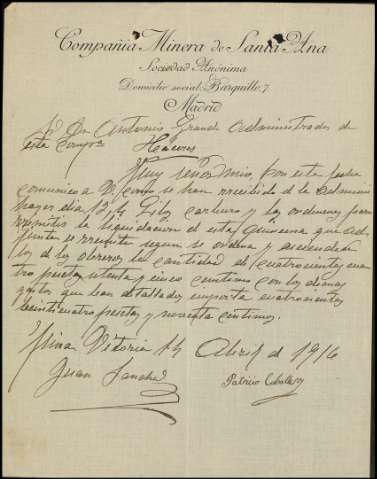 Compañia Minera de Santa Ana
Sociedad Anónima
Domicilio social: Barquillo, 7
Madrid
Sr Dn Antonio Grande Administrador de
esta Compa
Muy señor mio, por esta pase
comunico a V. como se han recibido de la
dia 13/4 carburo y las ordenes para
remitir la liquidacion de esta quincena que ad
junta se rremite segun se ordena y asciende
la de los obreros la cantidad de cuatrocientos cua
tro pesetas y cinco centimos con los demas
gastos que ban detallados importa cuatrocientos
beinticuatro pesetas y nobenta centimos.
Mina Vitoria Abril de 1916
Juan Sanchez
Patricio